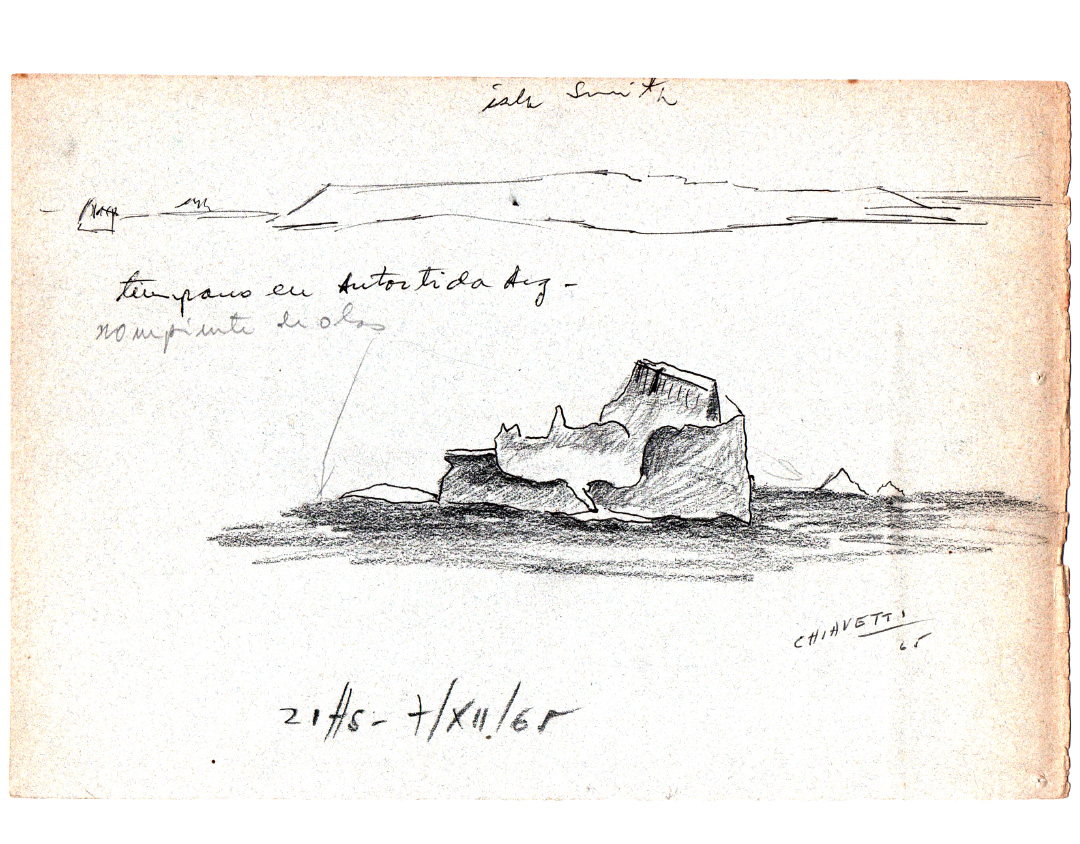 isla Smith
témpano en Antártida Arg -
rompiente de olas
CHIAVETTI
65
21 Hs - 7/XII/65